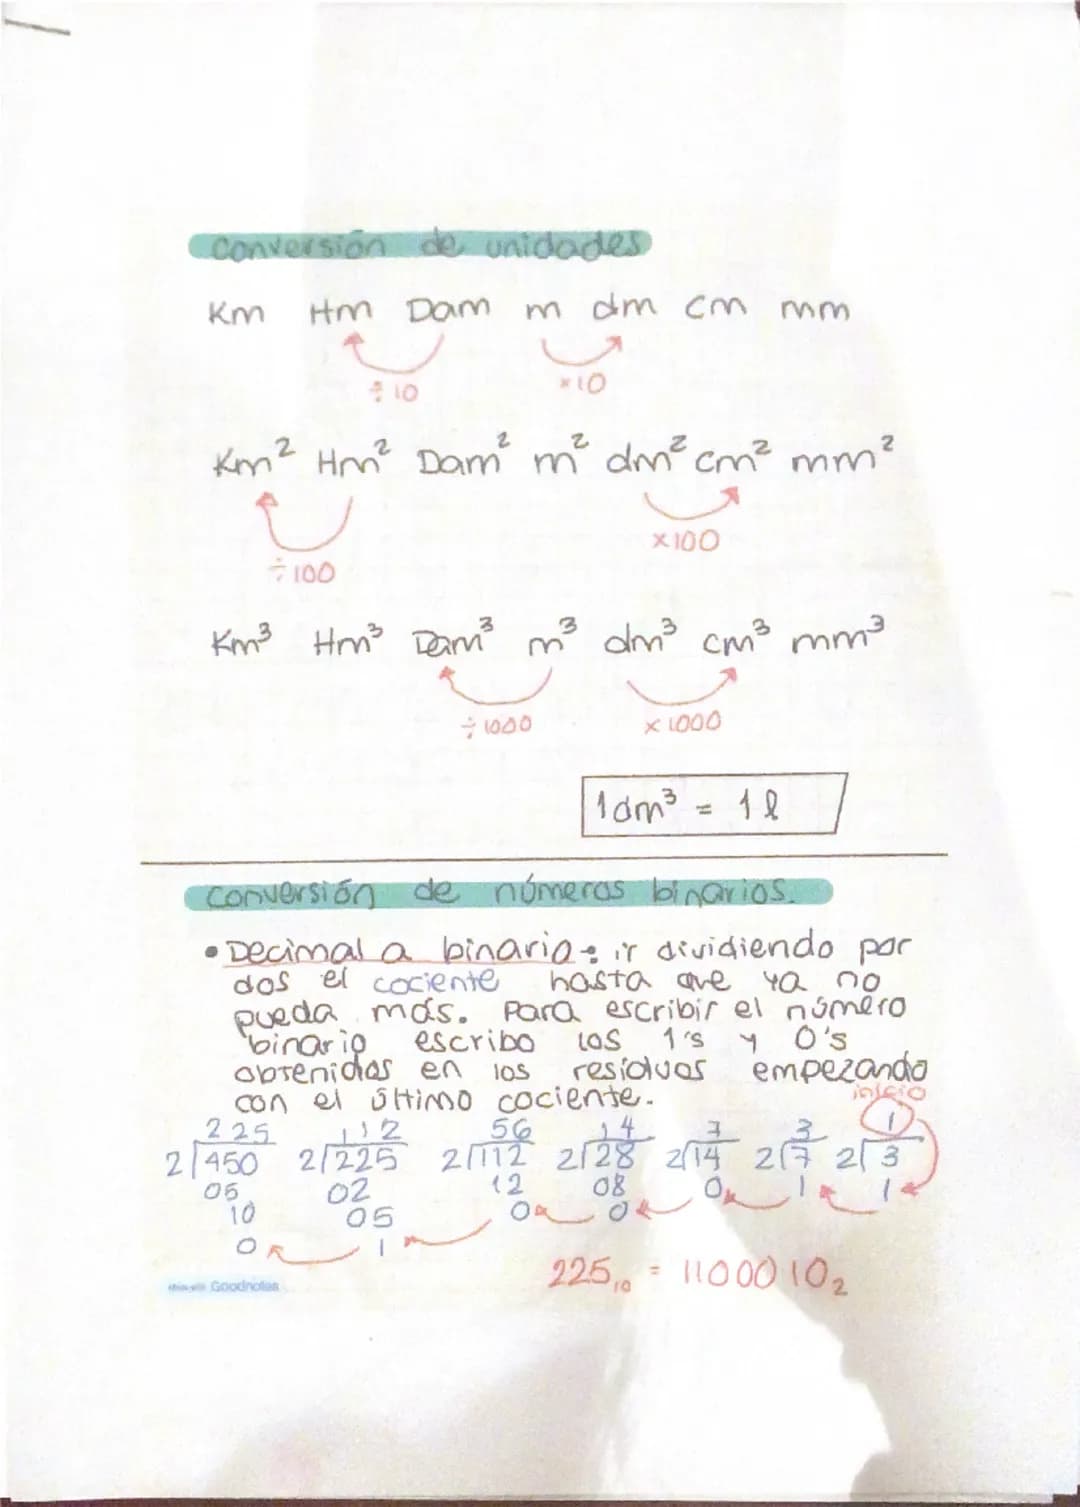 Conversión de unidades
Km Hm Dam m dm cm mm
÷10 ×10
Km² Hm² Dam² m² dm² cm² mm²
×100
÷100
Km³ Hm³ Dam³ m³ dm³ cm³ mm³
÷1000 ×1000
1dm³ = 1l
conversión de números binarios.
• Decimal a binario: ir dividiendo por
dos el cociente hasta que ya no
pueda más. Para escribir el número
binario escribo los 1's y 0's
obtenidos en los residuos empezando
con el último cociente.
inicio
225 112 56 14 7 3 1
2/450 2/225 2/112 2/28 2/14 2/7 2/3
05 02 12 08 0 1 1
10 05 0 0
0 1
225₁₀ = 1100010₂
Goodnotes